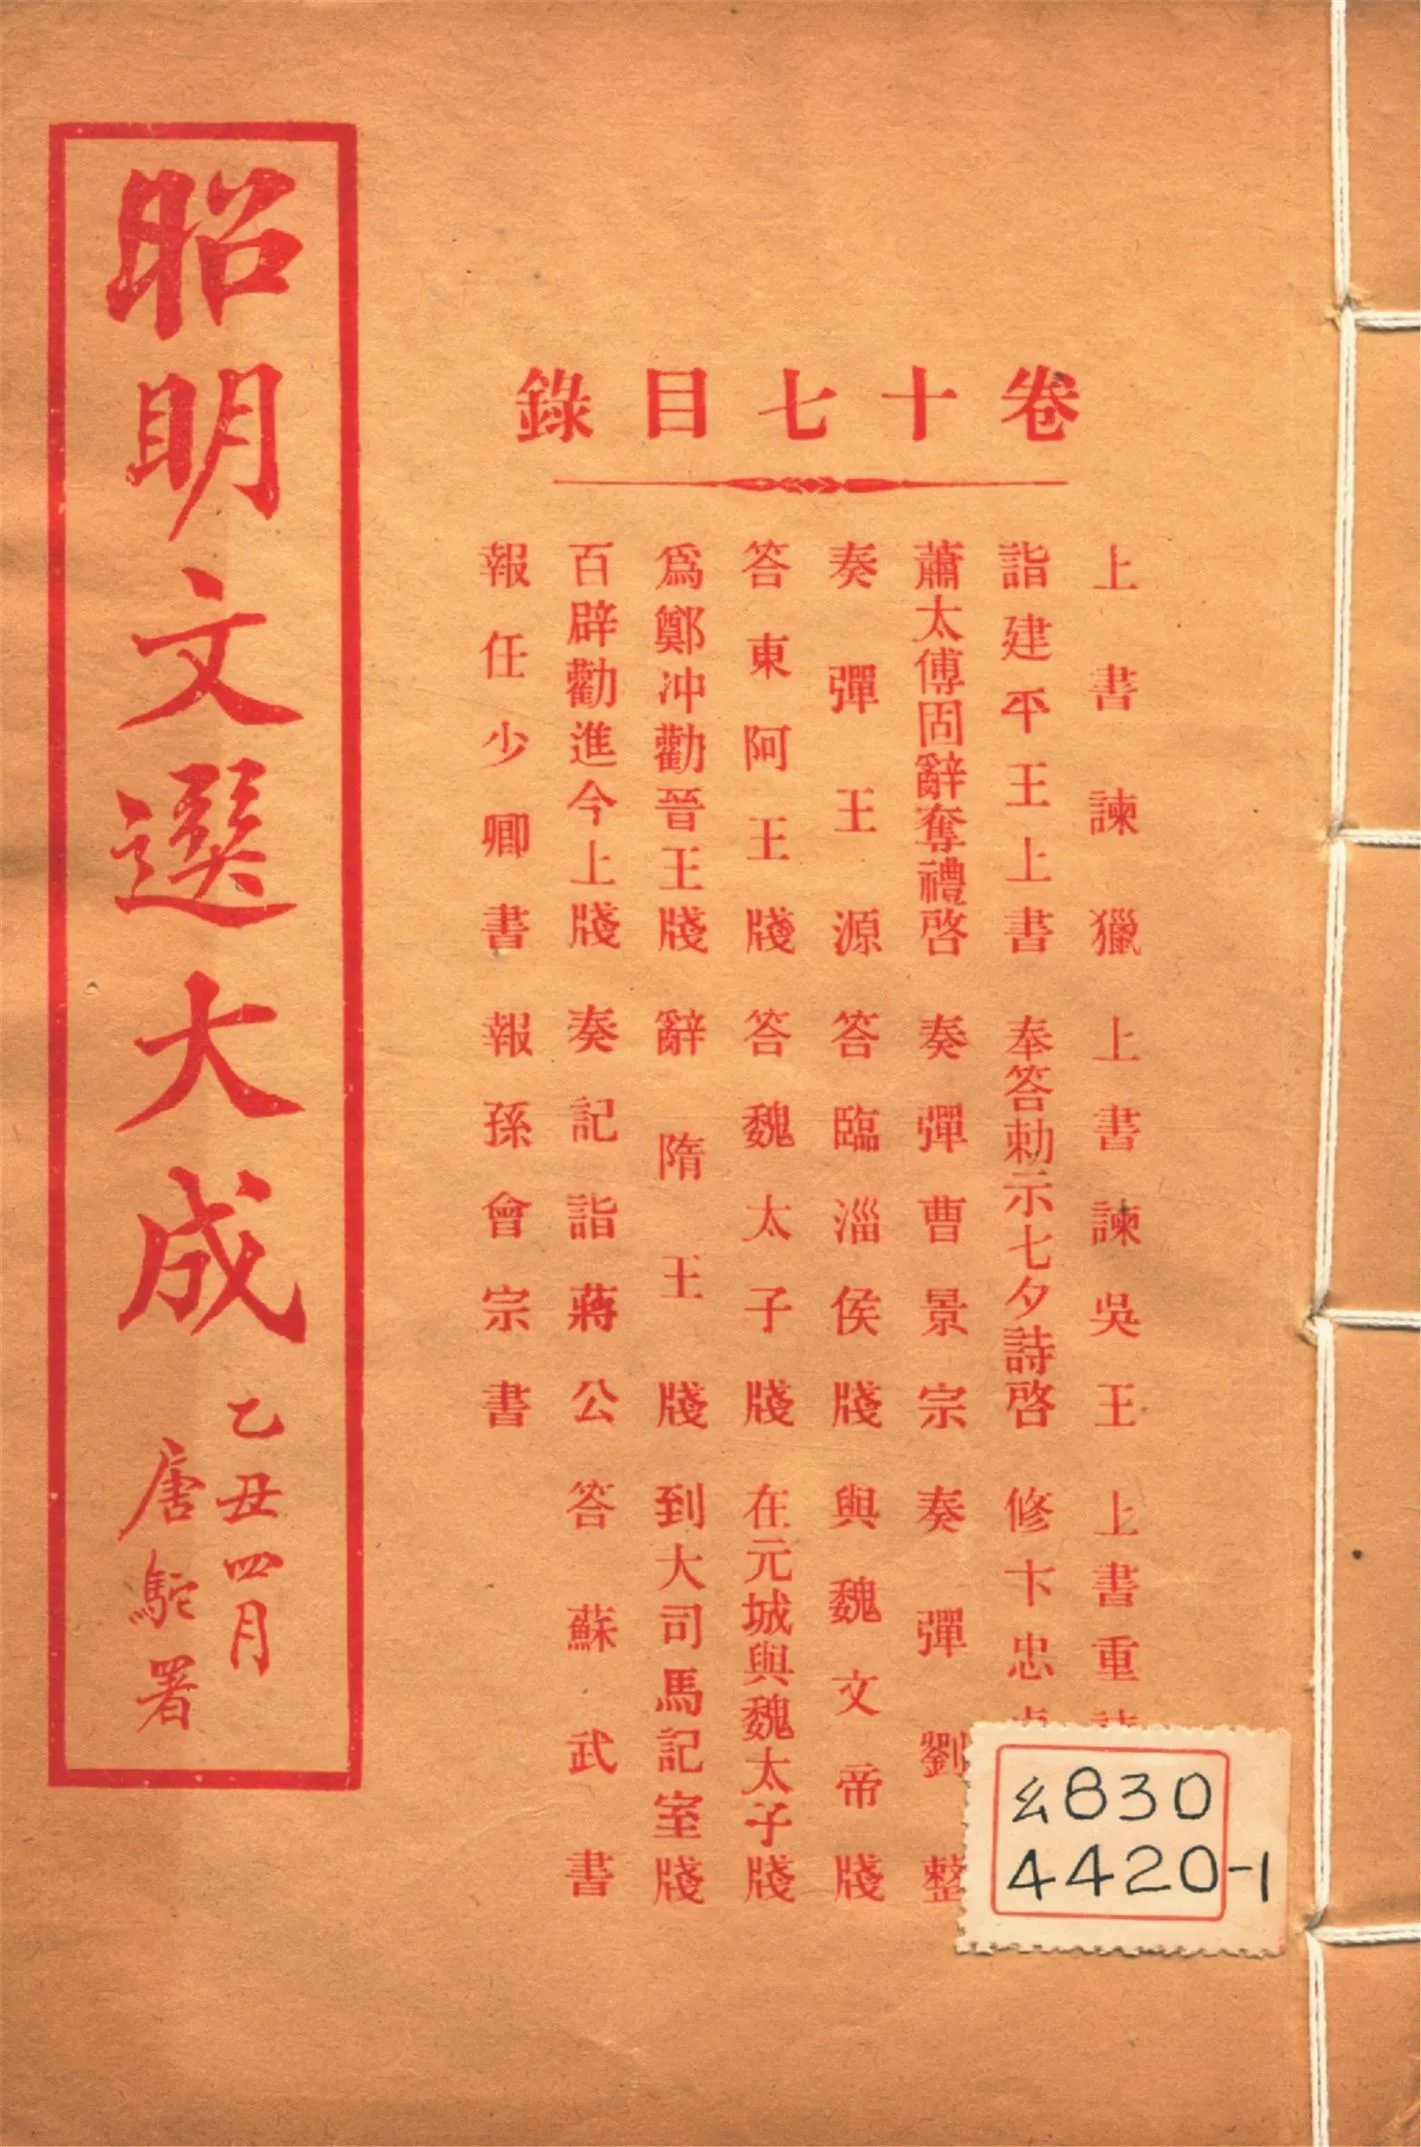 卷十七目錄
上書諫獵 上書諫吳王 上書重諫
詣建平王上書 奉答勅示七夕詩啓 修卞忠貞
蕭太傅固辭奪禮啓 奏彈曹景宗 奏彈劉整
奏彈王源 答臨淄侯牋 與魏文帝牋
答東阿王牋 答魏太子牋 在元城與魏太子牋
爲鄭冲勸晉王牋 辭隋王牋 到大司馬記室牋
百辟勸進今上牋 奏記詣蔣公 答蘇武書
報任少卿書 報孫會宗書
昭明文選大成
乙丑四月
唐駝署
幺830
4420-1